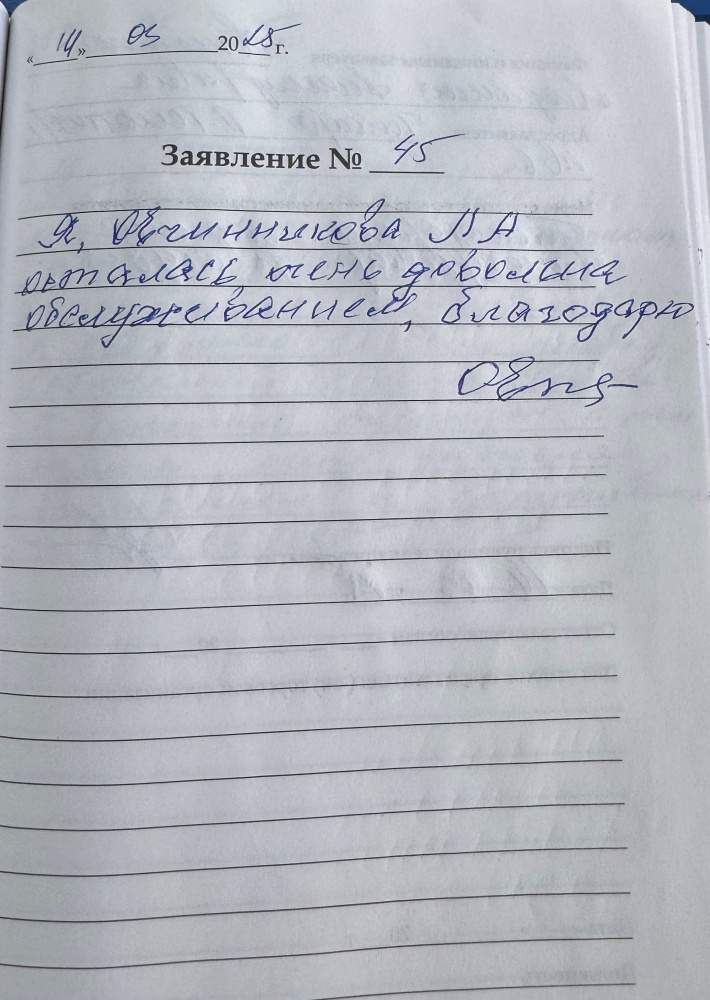 «14» 03 2025 г.
Заявление № 45
Я, Овчинникова Л А
осталась очень довольна
обслуживанием, благодарю